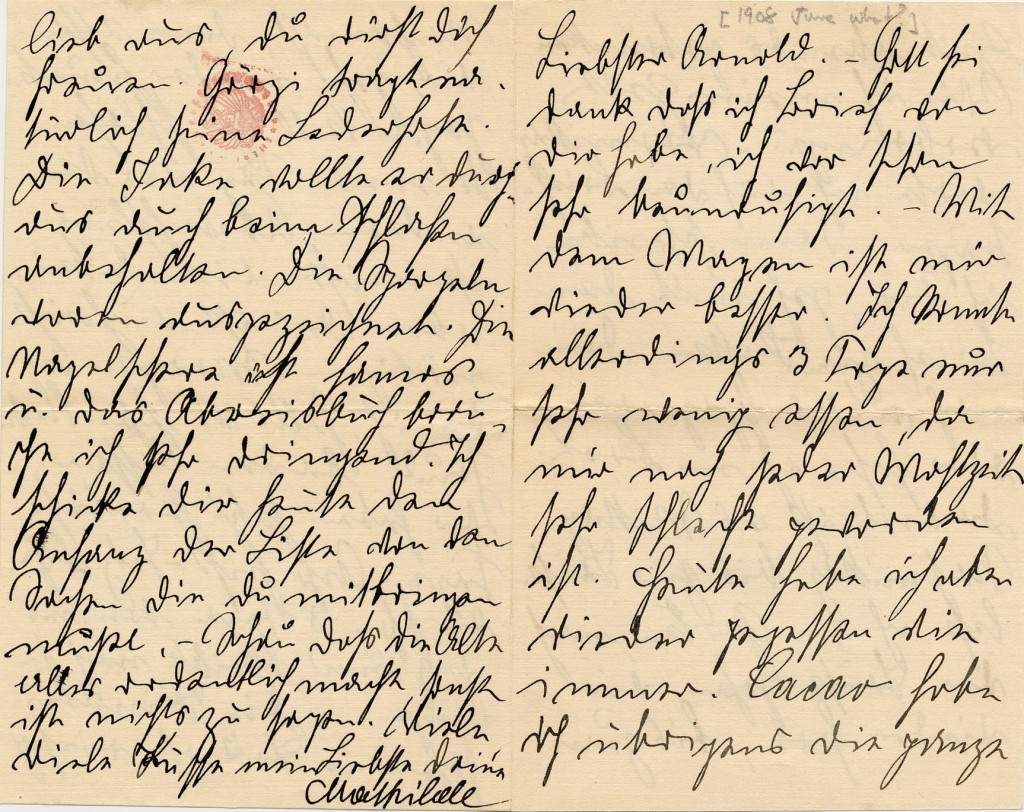 [1908 June what?]
Liebster Arnold. – Gott sei
dank dass ich Brief von
dir habe, ich war schon
sehr beunruhigt. – Mit
dem Magen ist mir
wieder besser. Ich konnte
allerdings 3 Tage nur
sehr wenig essen, da
mir nach jeder Mahlzeit
sehr schlecht geworden
ist. Heute habe ich aber
wieder gegessen wie
immer. Cacao habe
ich übrigens die ganze
lieb aus, du wirst dich
freuen. Görgi tragt na-
türlich seine Lederhose.
Die Jake wollte er durch-
aus auch beim Schlafen
anbehalten. Die Spargeln
waren ausgezeichnet. Die
Nagelschere ist famos
u. das Abreisbuch brau-
che ich sehr dringend. Ich
schicke dir heute den
Anfang der Liste von den
Sachen die du mitbringen
mußt. – Schau dass die Alte
alles ordentlich macht sonst
ist nichts zu sagen. Viele
viele Küsse mein Liebster deine
Mathilde